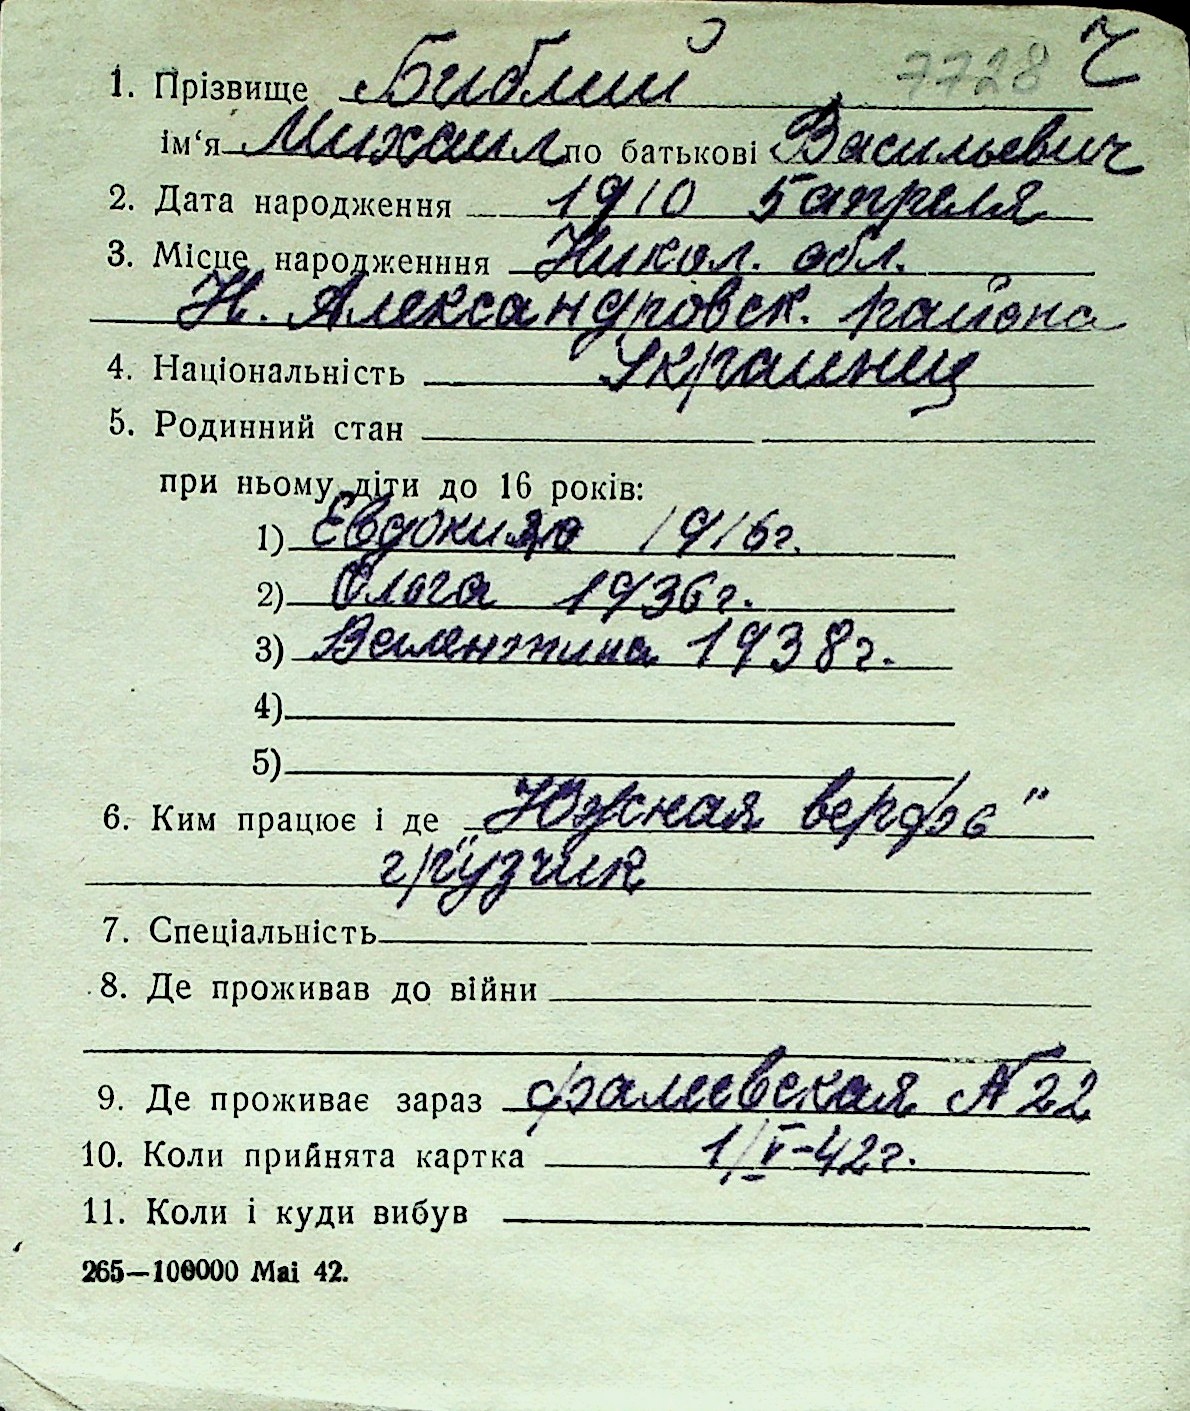 7728 Ч
1. Прізвище Библий
ім‘я Михаил по батькові Васильевич
2. Дата народження 1910 5 апреля
3. Місце народженння Никол. обл.
Н. Александровск. района
4. Національність Украинец
5. Родинний стан
при ньому діти до 16 років:
1) Евдокия 1916г.
2) Ольга 1936г.
3) Валентина 1938г.
4)
5)
6. Ким працює і де "Южная верфь"
грузчик
7. Спеціальність
8. Де проживав до війни
9. Де проживає зараз Фалеевская № 22
10. Коли прийнята картка 1/VI-42г.
11. Коли і куди вибув
265—100000 Mai 42.